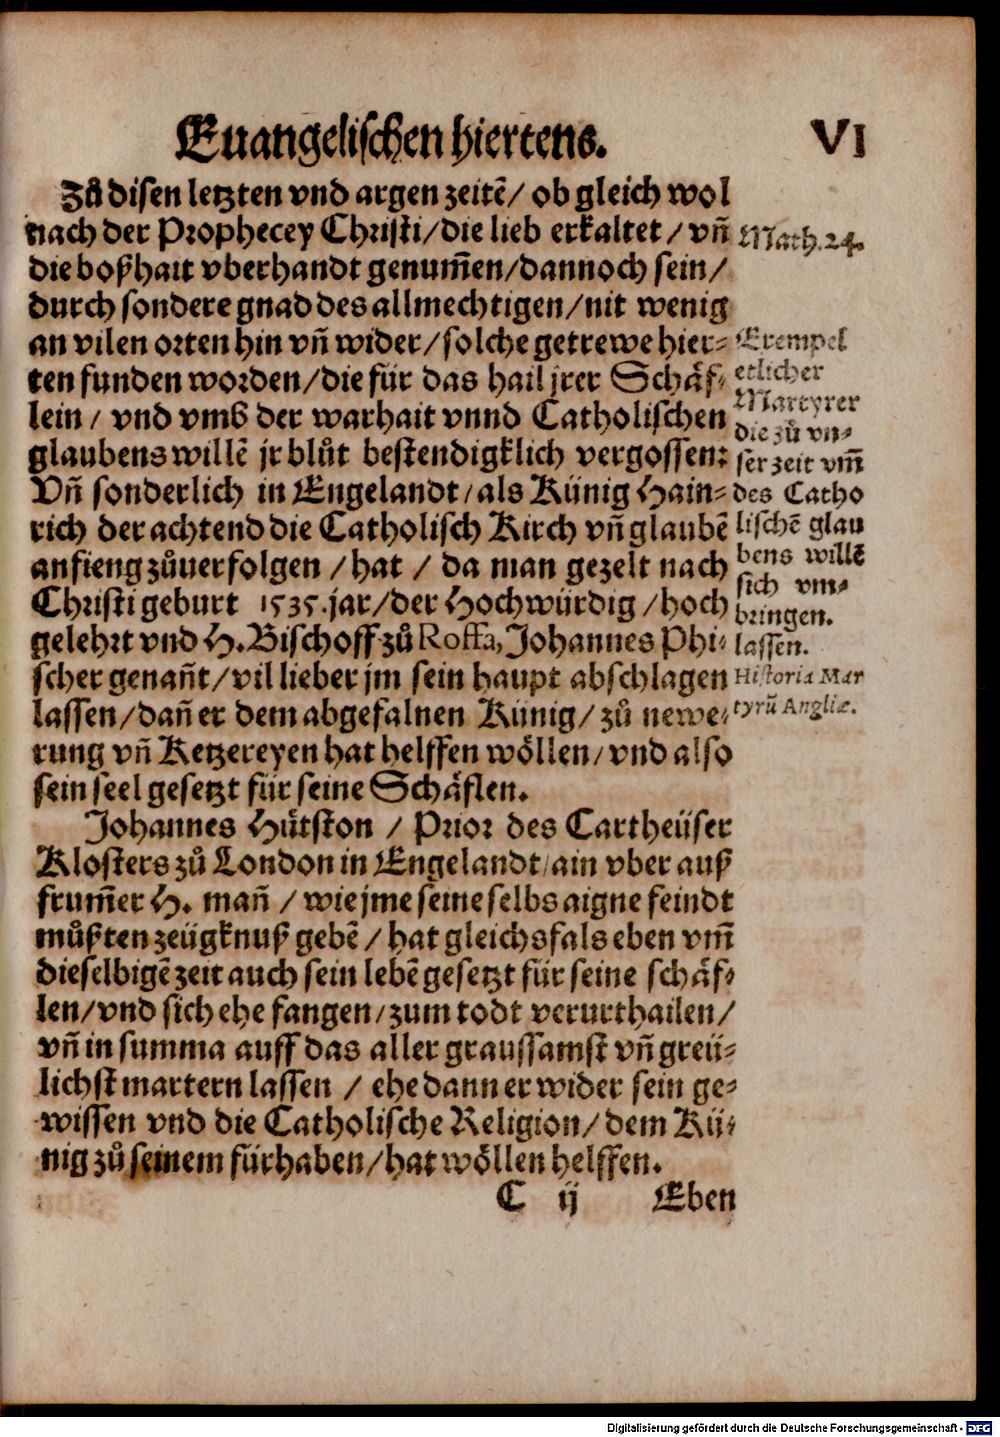 Euangelischen hiertens. VI
Zů disen letzten vnd argen zeitē/ ob gleich wol
nach der Prophecey Christi/die lieb erkaltet/ vñ
die boßhait vberhandt genum̃en/dannoch sein/
durch sondere gnad des allmechtigen/nit wenig
an vilen orten hin vñ wider/solche getrewe hier-
ten funden worden/die für das hail jrer Schäf-
lein/ vnd vmb der warhait vnnd Catholischen
glaubens willē jr blůt bestendigklich vergossen:
Vñ sonderlich in Engelandt/als Künig Hain-
rich der achtend die Catholisch Kirch vñ glaubē
anfieng zůuerfolgen/hat/ da man gezelt nach
Christi geburt 1535.jar/der Hochwürdig/hoch
gelehrt vnd H.Bischoff zů Roffa, Johannes Phi-
scher genañt/vil lieber jm sein haupt abschlagen
lassen/dañ er dem abgefalnen Künig/ zů newe-
rung vñ Ketzereyen hat helffen wöllen/vnd also
sein seel gesetzt für seine Schäflen.
Johannes Hůtston / Prior des Cartheüser
Klosters zů London in Engelandt/ain vber auß
frum̃er H. mañ / wie jme seine selbs aigne feindt
můßten zeügknuß gebē/ hat gleichsfals eben vm̃
dieselbigē zeit auch sein lebē gesetzt für seine schäf-
len/vnd sich ehe fangen/zum todt verurthailen/
vñ in summa auff das aller graussamst vñ greü-
lichst martern lassen / ehe dann er wider sein ge-
wissen vnd die Catholische Religion/ dem Kü-
nig zů seinem fürhaben/hat wöllen helffen.
C ij Eben
Math.24.
Exempel
etlicher
Martyrer
die zů vn-
ser zeit vm̃
des Catho
lischē glau
bens willē
sich vm-
bringen.
lassen.
Historia Mar
tyrũ Angliæ.
Digitalisierung gefördert durch die Deutsche Forschungsgemeinschaft - DFG